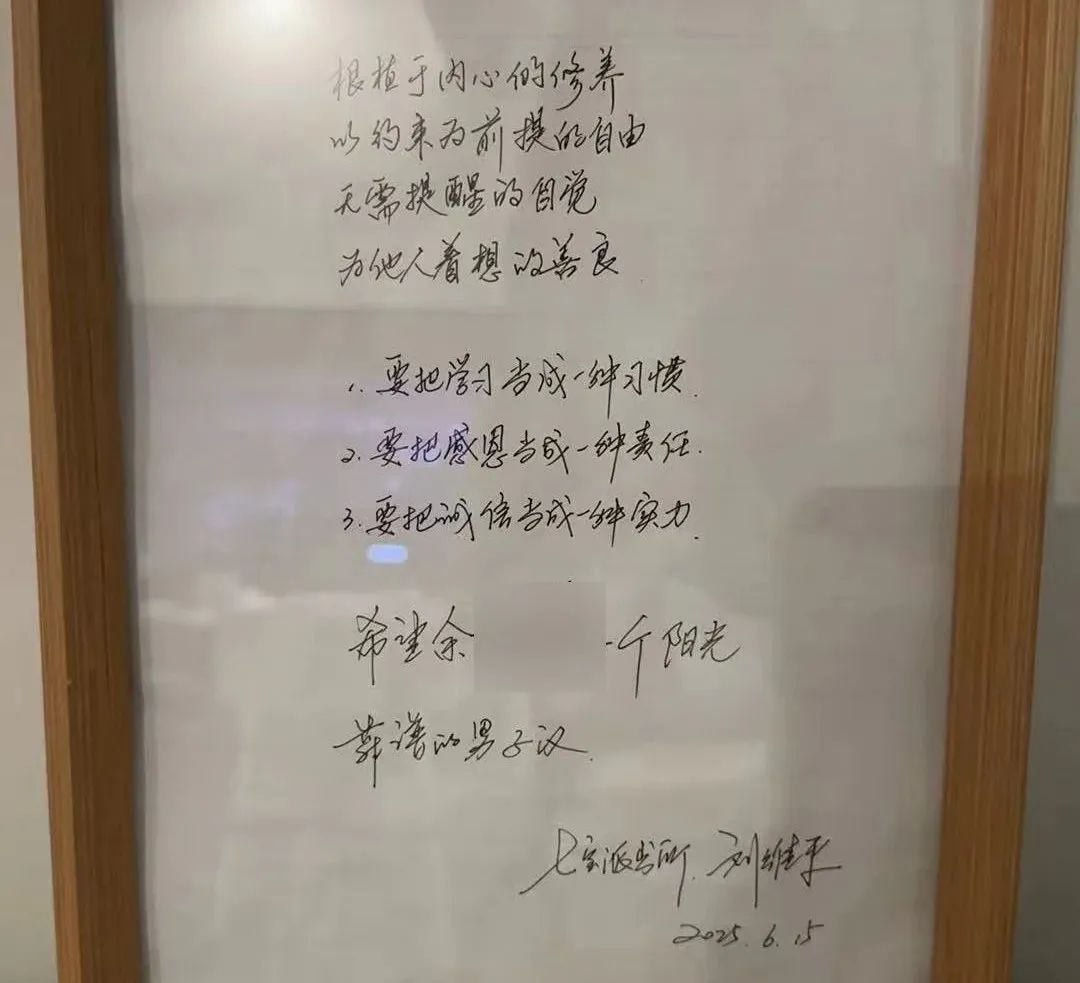 根植于内心的修养
以约束为前提的自由
无需提醒的自觉
为他人着想的善良
1. 要把学习当成一种习惯.
2. 要把感恩当成一种责任.
3. 要把诚信当成一种实力.
希望余 一个阳光
靠谱的男子汉.
七宝派出所. 刘维平
2025.6.15